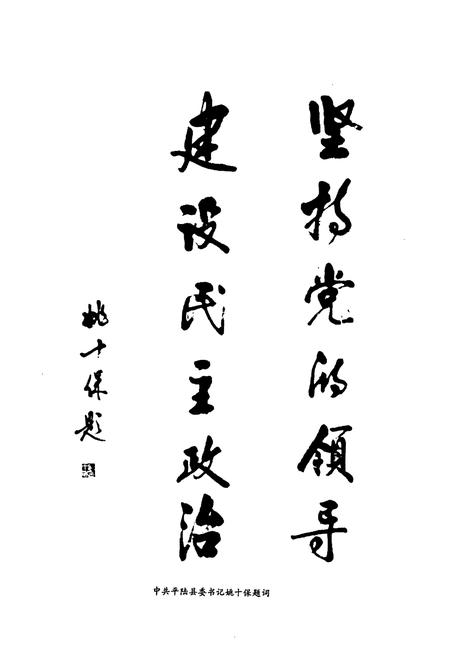 坚持党的領导
建设民主政治
姚十保题
中共平陆县委书记姚十保题词